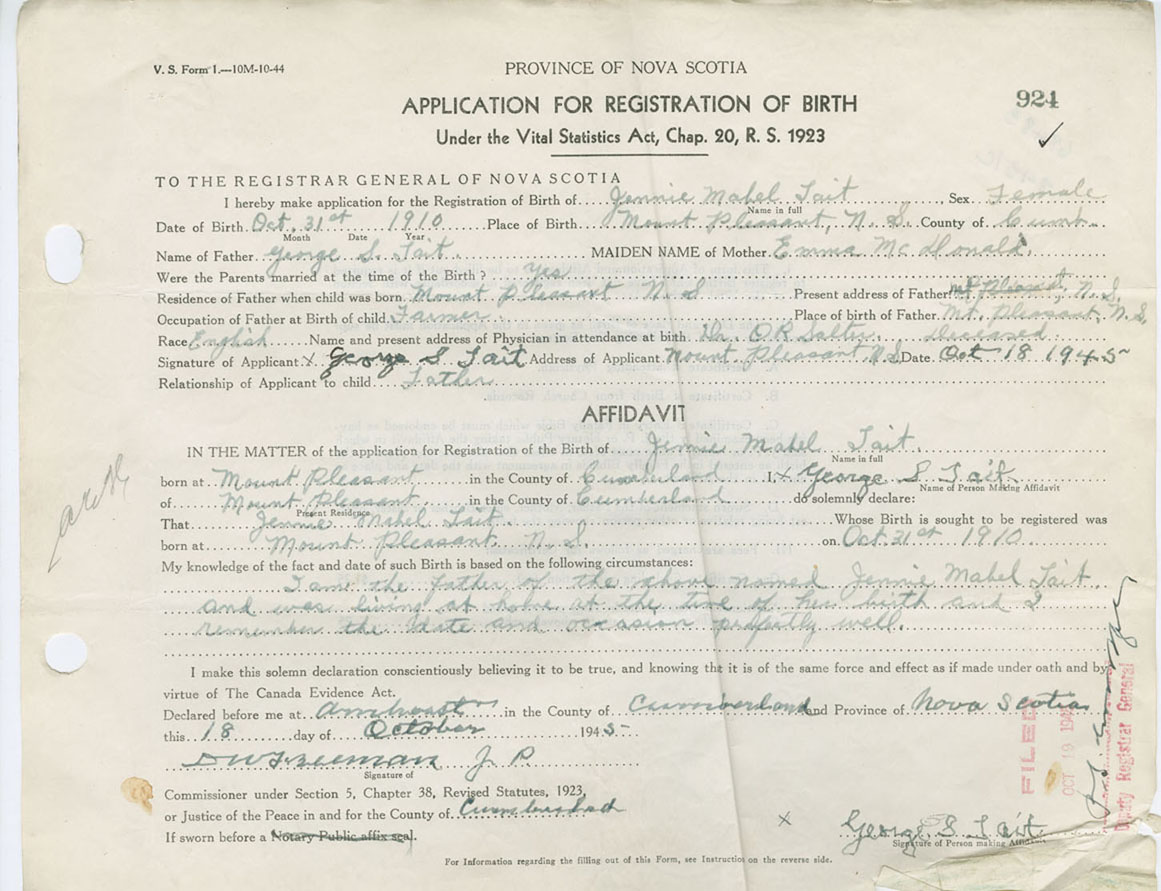 V. S. Form 1.—10M-10-44
PROVINCE OF NOVA SCOTIA
924
APPLICATION FOR REGISTRATION OF BIRTH
Under the Vital Statistics Act, Chap. 20, R. S. 1923
TO THE REGISTRAR GENERAL OF NOVA SCOTIA
I hereby make application for the Registration of Birth of Jennie Mabel Tait Sex Female
Name in full
Date of Birth Oct. 31st 1910 Place of Birth Mount Pleasant, N. S. County of Cumb.
Month Date Year
Name of Father George S. Tait MAIDEN NAME of Mother Emma McDonald.
Were the Parents married at the time of the Birth? Yes
Residence of Father when child was born Mount Pleasant N. S Present address of Father Mt Pleasant, N. S.
Occupation of Father at Birth of child Farmer Place of birth of Father Mt. Pleasant, N. S,
Race English Name and present address of Physician in attendance at birth Dr. O R Salter, deceased
Signature of Applicant X George S Tait Address of Applicant Mount Pleasant N.S. Date Oct 18 1945
Relationship of Applicant to child Father
AFFIDAVIT
IN THE MATTER of the application for Registration of the Birth of Jennie Mabel Tait.
Name in full
born at Mount Pleasant in the County of Cumberland I, X George S Tait
Name of Person Making Affidavit
of Mount Pleasant in the County of Cumberland do solemnly declare:
Present Residence
That Jennie Mabel Tait Whose Birth is sought to be registered was
born at Mount Pleasant N. S. on Oct 31st 1910
My knowledge of the fact and date of such Birth is based on the following circumstances:
I am the father of the above named Jennie Mabel Tait
and was living at home at the time of her birth and I
remember the date and occasion perfectly well.
I make this solemn declaration conscientiously believing it to be true, and knowing tha it is of the same force and effect as if made under oath and by
virtue of The Canada Evidence Act.
Declared before me at Amherst in the County of Cumberland and Province of Nova Scotia
this 18 day of October 1945
D W Freeman J. P.
Signature of
Commissioner under Section 5, Chapter 38, Revised Statutes, 1923,
or Justice of the Peace in and for the County of Cumberland
If sworn before a Notary Public affix seal.
X George S. Tait
Signature of Person making Affidavit
For Information regarding the filling out of this Form, see Instruction on the reverse side.
FILED
OCT 19 194
Deputy Registrar General